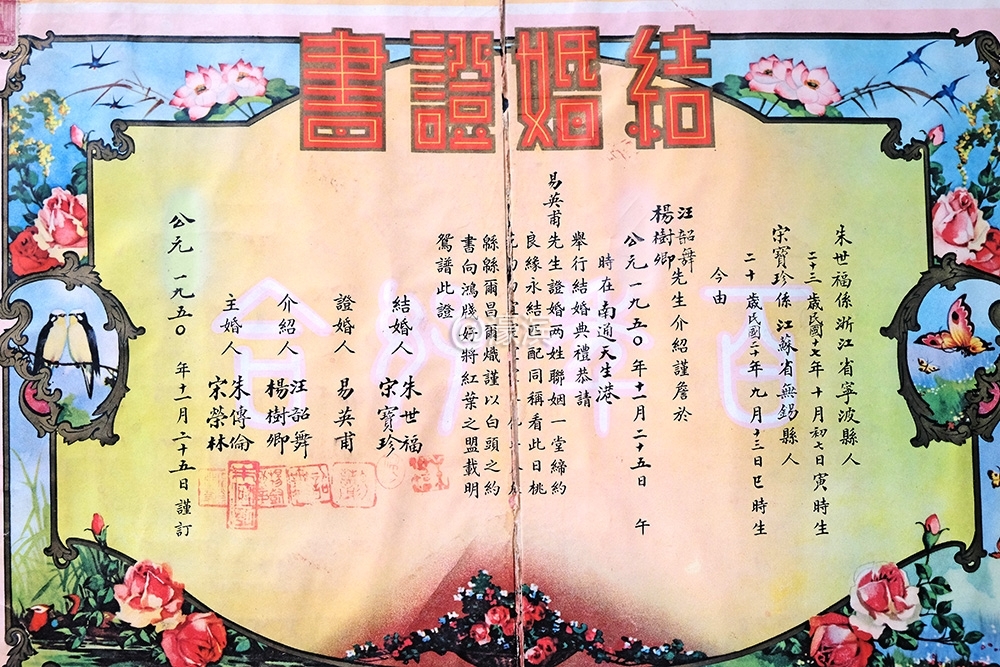 結婚證書
朱世福係浙江省寧波縣人
二十三歲民國十七年十月初七日寅時生
宋寶珍係江蘇省無錫縣人
二十歲民國二十年九月十三日巳時生
今由
汪韶舞
楊樹卿
先生介紹謹詹於
公元一九五〇年十一月二十五日 午
時在南通天生港
舉行結婚典禮恭請
易英甫先生證婚两姓聯姻一堂締約
良緣永结匹配同稱看此日桃
緜緜爾昌爾熾謹以白頭之約
書向鴻牋好將紅葉之盟載明
鴛譜此證
結婚人 朱世福
宋寶珍
證婚人 易英甫
介紹人 汪韶舞
楊樹卿
主婚人 朱傳倫
宋榮林
公元一九五〇年十一月二十五日謹訂